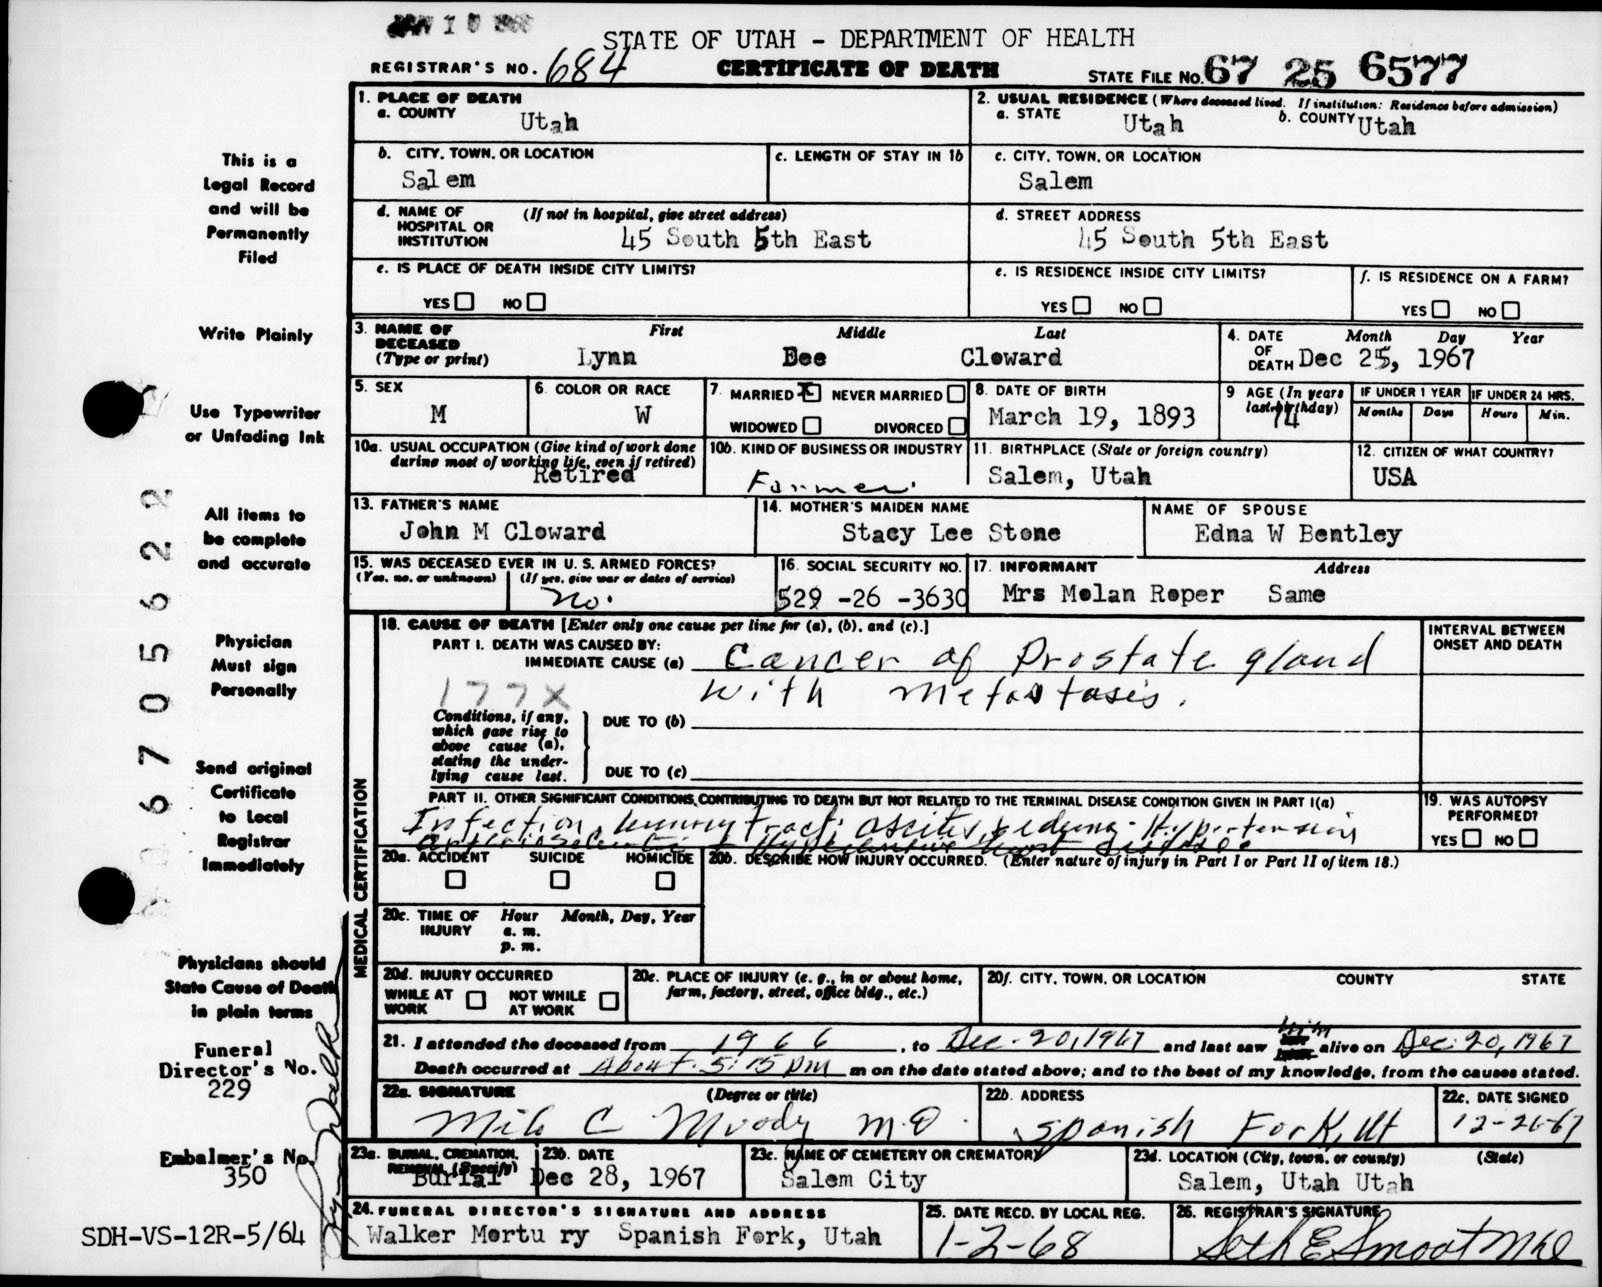 JAN 10 1968
STATE OF UTAH - DEPARTMENT OF HEALTH
REGISTRAR'S NO. 684 CERTIFICATE OF DEATH STATE FILE NO. 67 25 6577
This is a
Legal Record
and will be
Permanently
Filed
Write Plainly
Use Typewriter
or Unfading Ink
All items to
be complete
and accurate
Physician
Must sign
Personally
Send original
Certificate
to Local
Registrar
Immediately
Physicians should
State Cause of Death
in plain terms
Funeral
Director's No.
229
Embalmer's No.
350
SDH-VS-12R-5/64
6705622
1. PLACE OF DEATH
a. COUNTY Utah
2. USUAL RESIDENCE (Where deceased lived. If institution: Residence before admission)
a. STATE Utah b. COUNTY Utah
b. CITY, TOWN, OR LOCATION
Salem
c. LENGTH OF STAY IN 1b
c. CITY, TOWN, OR LOCATION
Salem
d. NAME OF HOSPITAL OR INSTITUTION (If not in hospital, give street address)
45 South 5th East
d. STREET ADDRESS
45 South 5th East
e. IS PLACE OF DEATH INSIDE CITY LIMITS?
YES NO
e. IS RESIDENCE INSIDE CITY LIMITS?
YES NO
f. IS RESIDENCE ON A FARM?
YES NO
3. NAME OF DECEASED (Type or print) First Middle Last
Lynn Dee Cloward
4. DATE OF DEATH Month Day Year
Dec 25, 1967
5. SEX
M
6. COLOR OR RACE
W
7. MARRIED X NEVER MARRIED
WIDOWED DIVORCED
8. DATE OF BIRTH
March 19, 1893
9 AGE (In years last birthday)
74
IF UNDER 1 YEAR IF UNDER 24 HRS.
Months Days Hours Min.
10a. USUAL OCCUPATION (Give kind of work done during most of working life, even if retired)
Retired
10b. KIND OF BUSINESS OR INDUSTRY
Farmer.
11. BIRTHPLACE (State or foreign country)
Salem, Utah
12. CITIZEN OF WHAT COUNTRY?
USA
13. FATHER'S NAME
John M Cloward
14. MOTHER'S MAIDEN NAME
Stacy Lee Stone
NAME OF SPOUSE
Edna W Bentley
15. WAS DECEASED EVER IN U. S. ARMED FORCES?
(Yes, no, or unknown) (If yes, give war or dates of service)
No.
16. SOCIAL SECURITY NO.
529 -26 -3630
17. INFORMANT Address
Mrs Molan Roper Same
MEDICAL CERTIFICATION
18. CAUSE OF DEATH [Enter only one cause per line for (a), (b), and (c).]
PART I. DEATH WAS CAUSED BY:
IMMEDIATE CAUSE (a) Cancer of Prostate gland
177X with metastasis.
INTERVAL BETWEEN ONSET AND DEATH
Conditions, if any, which gave rise to above cause (a), stating the underlying cause last.
DUE TO (b)
DUE TO (c)
PART II. OTHER SIGNIFICANT CONDITIONS CONTRIBUTING TO DEATH BUT NOT RELATED TO THE TERMINAL DISEASE CONDITION GIVEN IN PART I(a)
Infection, urinary tract; ascites, edema - Hypertension
Arteriosclerotic + Hypertensive heart disease
19. WAS AUTOPSY PERFORMED?
YES NO
20a. ACCIDENT SUICIDE HOMICIDE
20b. DESCRIBE HOW INJURY OCCURRED. (Enter nature of injury in Part I or Part II of item 18.)
20c. TIME OF INJURY Hour Month, Day, Year
a. m.
p. m.
20d. INJURY OCCURRED
WHILE AT WORK NOT WHILE AT WORK
20e. PLACE OF INJURY (e. g., in or about home, farm, factory, street, office bldg., etc.)
20f. CITY, TOWN, OR LOCATION COUNTY STATE
21. I attended the deceased from 1966, to Dec. 20, 1967 and last saw him alive on Dec. 20, 1967
Death occurred at About 5:15 pm m on the date stated above; and to the best of my knowledge, from the causes stated.
22a. SIGNATURE (Degree or title)
Milo C Moody M.D.
22b. ADDRESS
Spanish Fork, Ut
22c. DATE SIGNED
12-26-67
23a. BURIAL, CREMATION, REMOVAL (Specify)
Burial
23b. DATE
Dec 28, 1967
23c. NAME OF CEMETERY OR CREMATORY
Salem City
23d. LOCATION (City, town, or county) (State)
Salem, Utah Utah
24. FUNERAL DIRECTOR'S SIGNATURE AND ADDRESS
Walker Mortu ry Spanish Fork, Utah
25. DATE RECD. BY LOCAL REG.
1-2-68
26. REGISTRAR'S SIGNATURE
Seth E Smoot MD